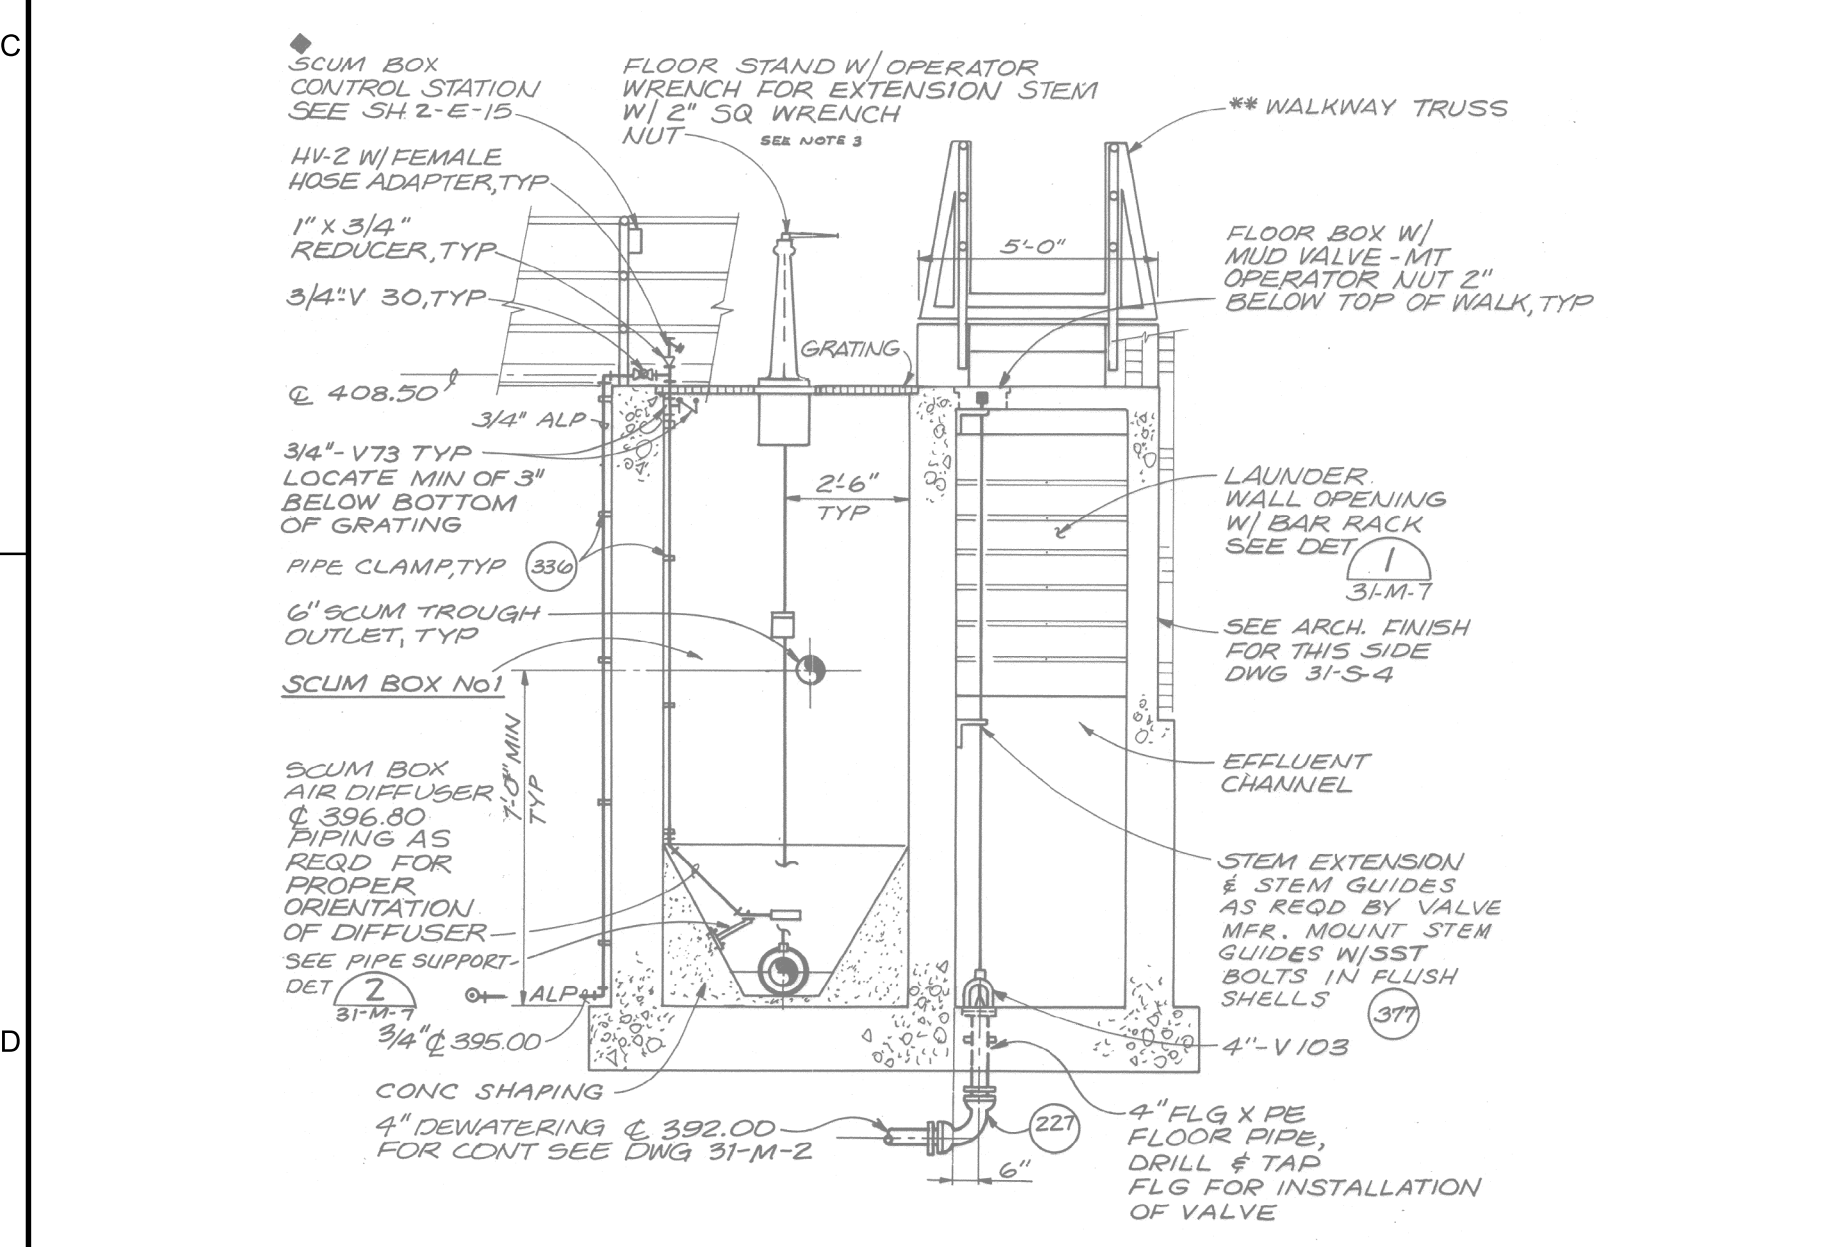 C
SCUM BOX
CONTROL STATION
SEE SH. 2-E-15
HV-2 W/FEMALE
HOSE ADAPTER, TYP
1" X 3/4"
REDUCER, TYP
3/4"-V 30, TYP
℄ 408.50
3/4" ALP
3/4"-V73 TYP
LOCATE MIN OF 3"
BELOW BOTTOM
OF GRATING
PIPE CLAMP, TYP
336
6" SCUM TROUGH
OUTLET, TYP
SCUM BOX No1
7'-0" MIN
TYP
SCUM BOX
AIR DIFFUSER
℄ 396.80
PIPING AS
REQD FOR
PROPER
ORIENTATION
OF DIFFUSER
SEE PIPE SUPPORT
DET
2
31-M-7
ALP
3/4" ℄ 395.00
D
CONC SHAPING
4" DEWATERING ℄ 392.00
FOR CONT SEE DWG 31-M-2
FLOOR STAND W/ OPERATOR
WRENCH FOR EXTENSION STEM
W/ 2" SQ WRENCH
NUT
SEE NOTE 3
GRATING
2'-6"
TYP
5'-0"
** WALKWAY TRUSS
FLOOR BOX W/
MUD VALVE-MT
OPERATOR NUT 2"
BELOW TOP OF WALK, TYP
LAUNDER
WALL OPENING
W/ BAR RACK
SEE DET
1
31-M-7
SEE ARCH. FINISH
FOR THIS SIDE
DWG 31-S-4
EFFLUENT
CHANNEL
STEM EXTENSION
& STEM GUIDES
AS REQD BY VALVE
MFR. MOUNT STEM
GUIDES W/SST
BOLTS IN FLUSH
SHELLS
377
4"-V103
4" FLG X PE
FLOOR PIPE,
DRILL & TAP
FLG FOR INSTALLATION
OF VALVE
227
6"